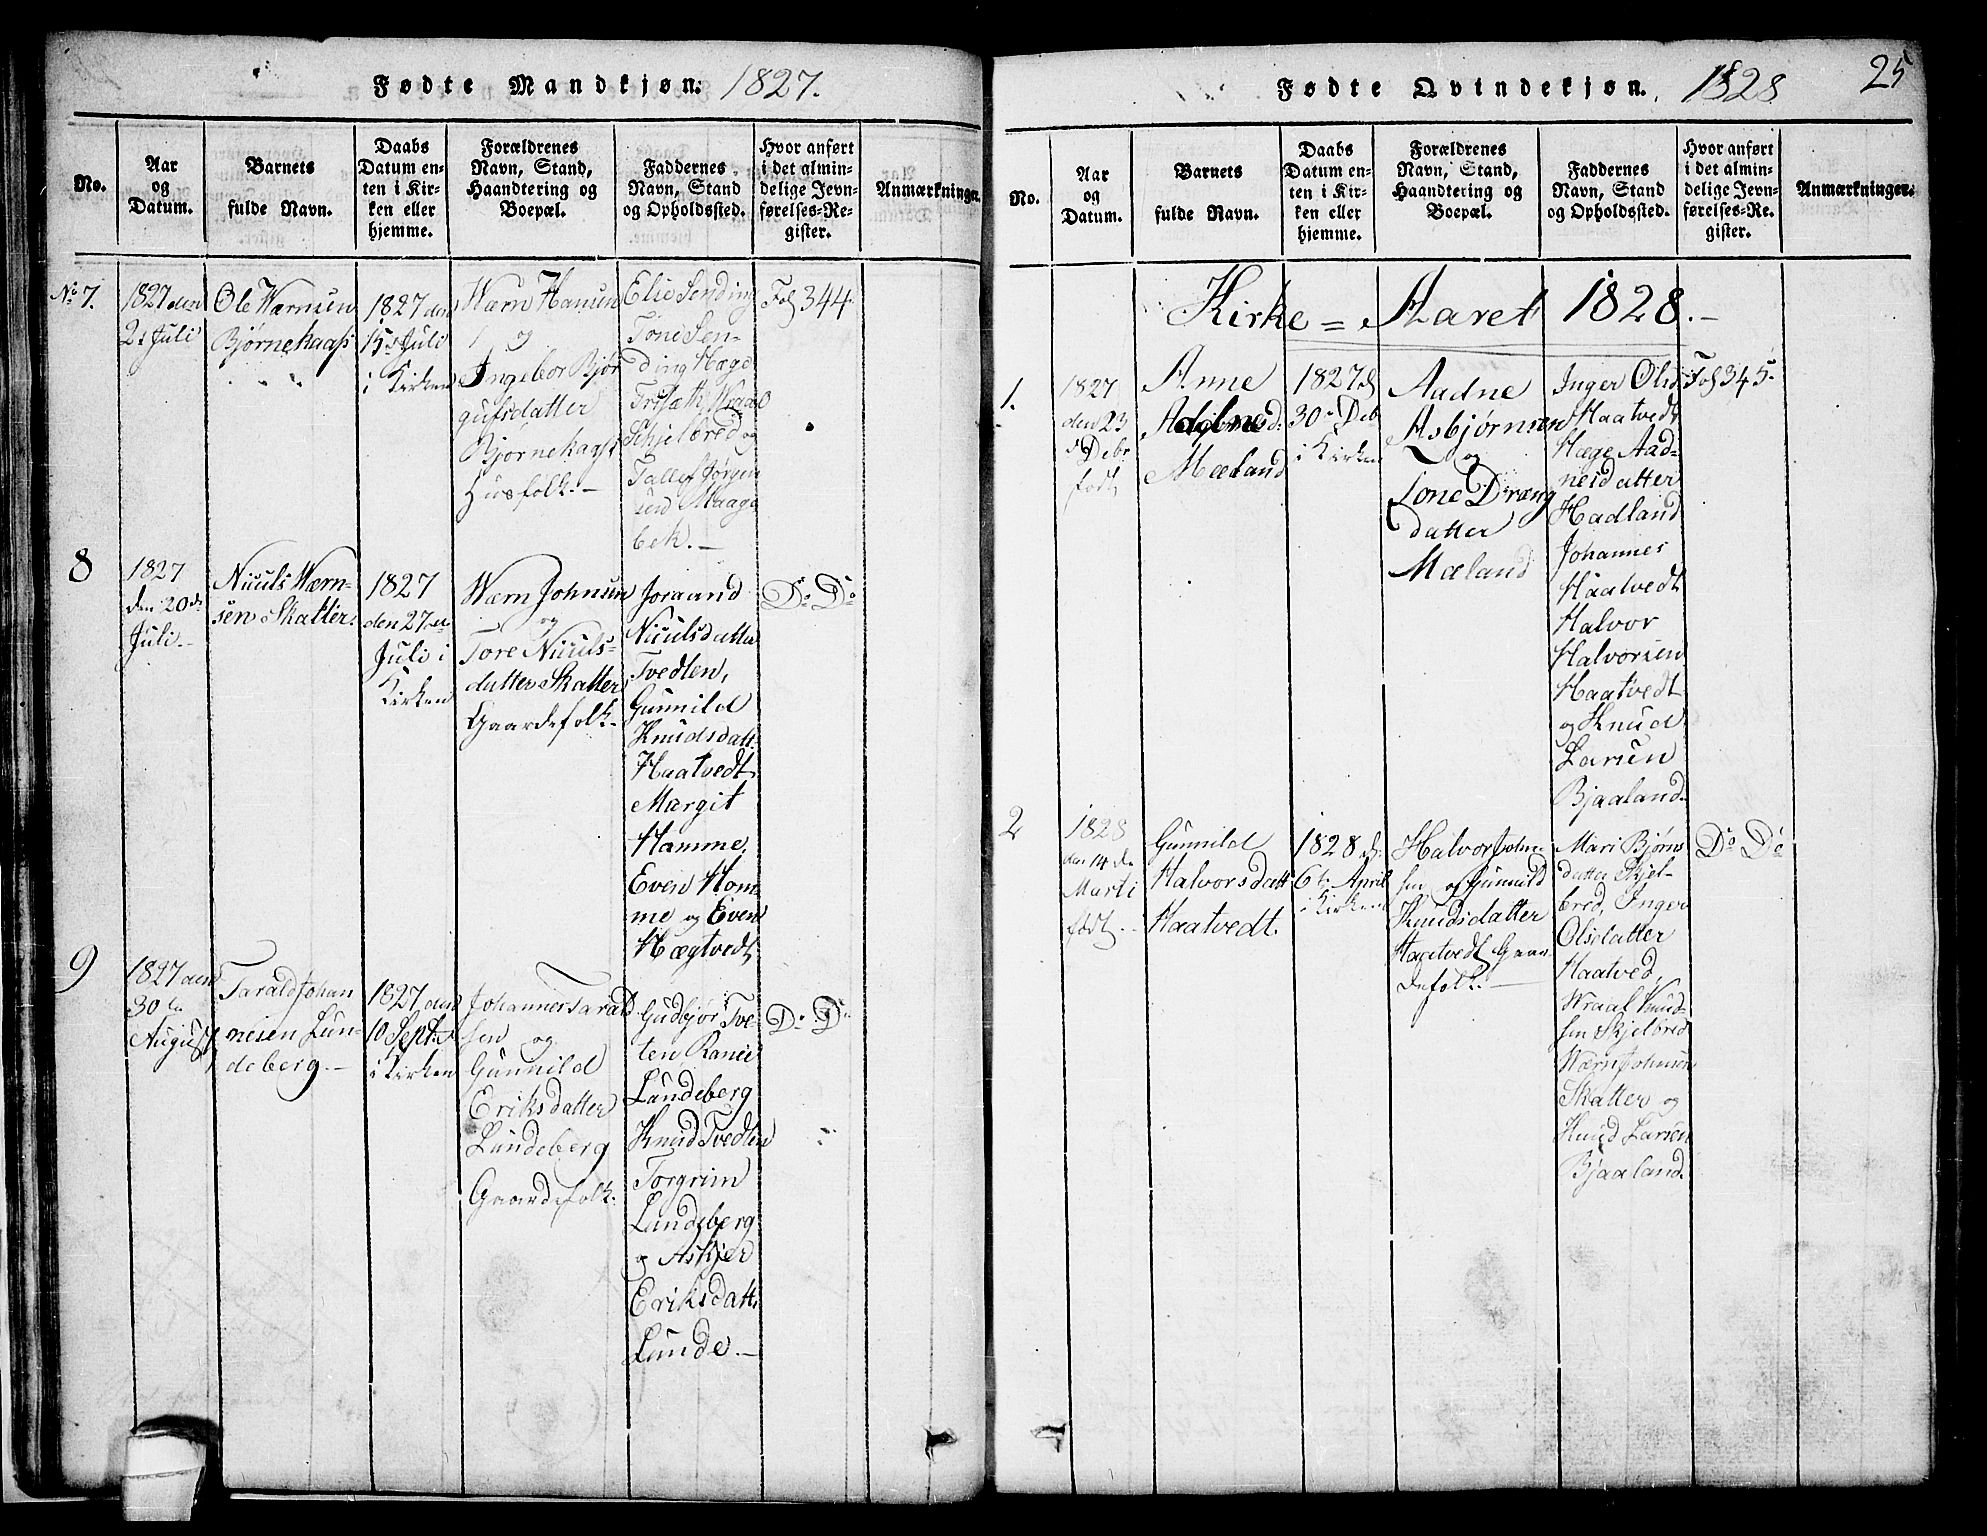 Fødte Mandkjøn: 1827.
No.
Aar
og
Datum.
Barnets
fulde Navn.
Daabs
Datum en-
ten i Kir-
ken eller
hjemme.
Forældrenes
Navn, Stand,
Haandtering og
Boepæl.
Faddernes
Navn, Stand
og Opholdssted.
Hvor anført
i det almin-
delige Jevn-
førelses-Re-
gister.
Anmærkninger.
No 7.
1827 den
2d Juli
Ole Wærnsen
Bjørnekaass
1827 den
15d Juli
i Kirken
Wærn Hansen
og
Ingebor Bjør
gufsdatter
Bjørnekaass
Husfolk.-
Elie Sending
Tone Sen-
ding Hæge
Wraal
Schjelbred og
Tallef Jørgen
sen Maage
bek.-
Fol 344.
8
1827
den 20de
Juli.-
Niculs Wærn-
sen Skatter.
1827
den 27de
Juli i
Kirken
Wærn Johnsen
og
Tore Niculs-
datter Skatter
Gaardefolk.
Joraand
Niculsdatter
Tvedten,
Gunnild
Knudsdatt.
Haatvedt
Margit
Homme,
Even Hom-
me og Even
Hægtvedt
Do Do
9
1827 den
30te
August
Tarald Johan
nesen Lun-
deberg.-
1827 den
10 Septr
i Kirken
Johannes Tarald
sen og
Gunnild
Eriksdatter
Lundeberg
Gaardefolk.
Gudbjør Tve-
ten
Lundeberg
Knud Tvedten
Torgrim
Lundeberg
og Askjer
Eriksdatt.
Lunde.-
Do Do
Fødte Qvindekjøn. 1828
25
No.
Aar
og
Datum.
Barnets
fulde Navn.
Daabs
Datum en-
ten i Kir-
ken eller
hjemme.
Forældrenes
Navn, Stand,
Haandtering og
Boepæl.
Faddernes
Navn, Stand
og Opholdssted.
Hvor anført
i det almin-
delige Jevn-
førelses-Re-
gister.
Anmærkninger.
Kirke = Aaret 1828.-
1.
1827
den 23
Debr
født
Anne
Mæland
1827 d
30te Deb
i Kirken
Aadne
Asbjørnsen
og
Tone Dræng
datter
Mæland
Inger Olsd
Haatvedt
Hæge Aad-
nesdatter
Hadland
Johannes
Haatvedt
Halvor
Halvorsen
Haatvedt
og Knud
Larsen
Bjaaland.
Fol 345.
2
1828
den 14de
Marti
født.-
Gunnild
Halvorsdatt
Haatvedt.
1828 d.
6te April
i Kirken
Halvor John-
sen og Gunnild
Knudsdatter
Haatvedt Gaar-
defolk.-
Mari Bjørns
datter Skjel-
bred, Inger
Olsdatter
Haatved,
Wraal Knud-
sen Skjelbred
Wærn Johnsen
Skatter og
Knud Larsen
Bjaaland.
Do Do